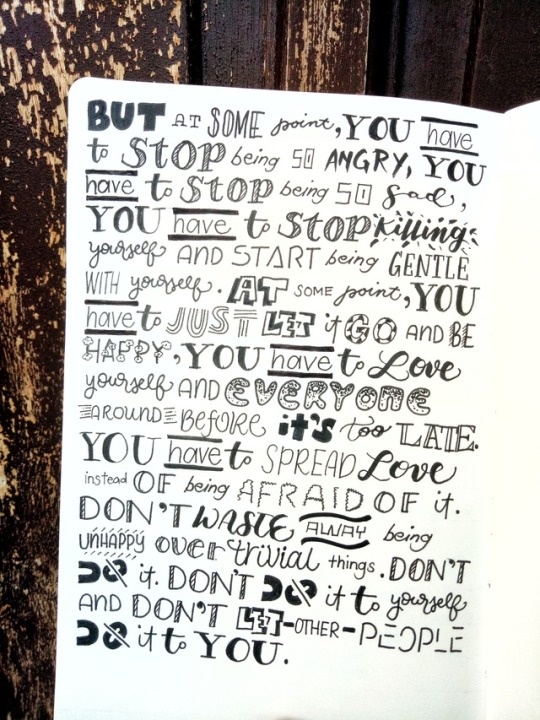 BUT AT SOME point, YOU have
to STOP being SO ANGRY, YOU
have to STOP being SO sad,
YOU have to STOP killing
yourself AND START being GENTLE
WITH yourself. AT SOME point, YOU
have to JUST LET it GO AND BE
HAPPY, YOU have to Love
yourself AND EVERYONE
AROUND BEFORE it's too LATE.
YOU have to SPREAD Love
instead OF being AFRAID OF it.
DON'T WASTE AWAY being
UNHAPPY over trivial things. DON'T
DO it. DON'T DO it to yourself
AND DON'T LET -OTHER- PEOPLE
DO it to YOU.